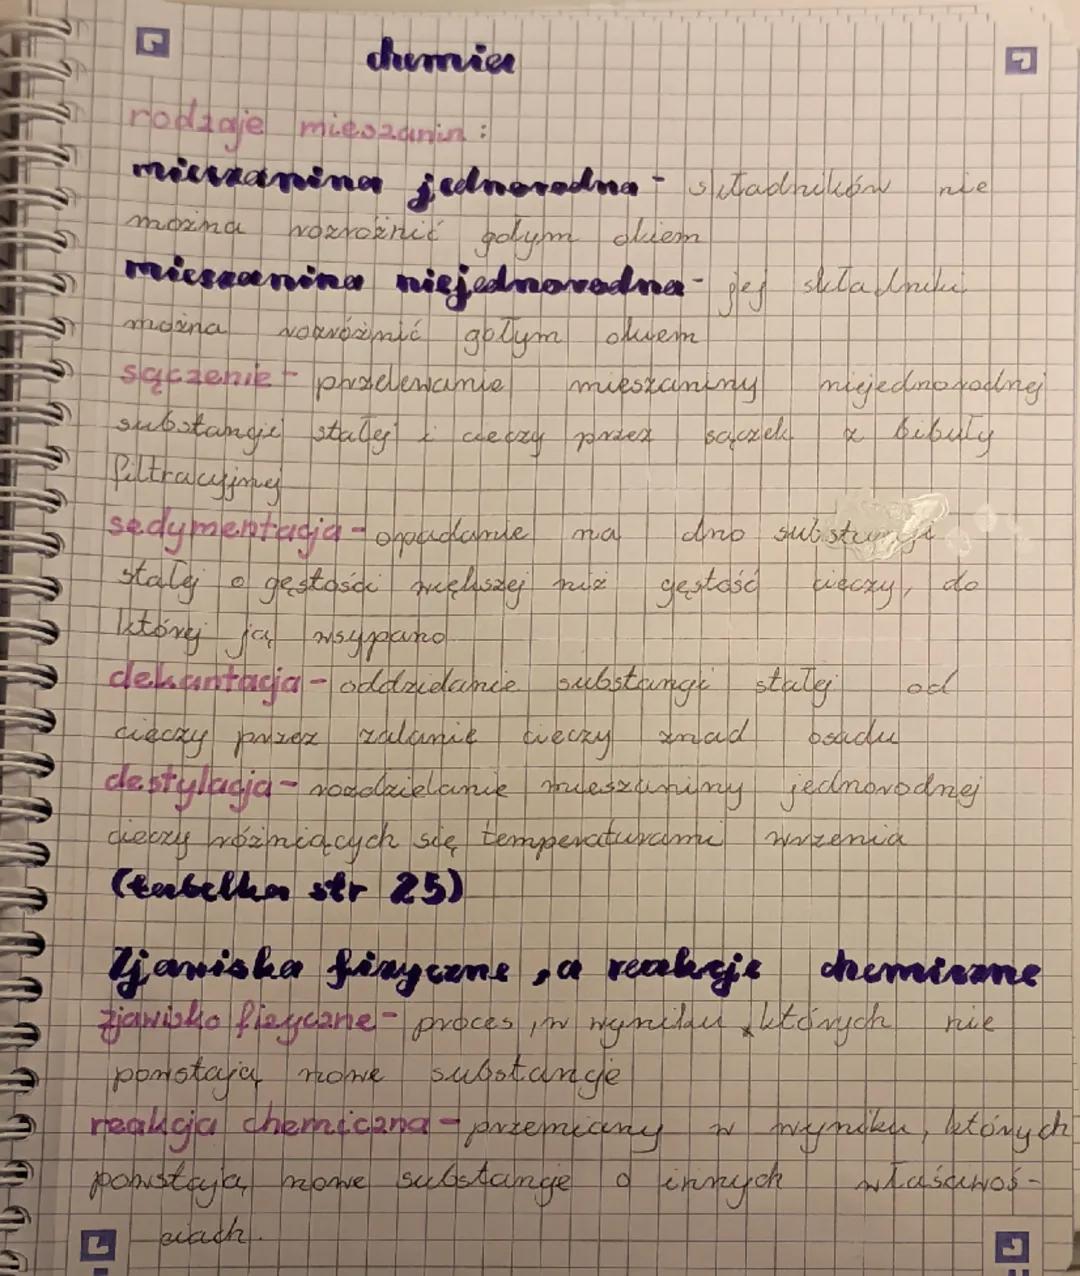 chemia
rodzaje mieszanin:
mieszanina jednorodna - składników nie
można rozróżnić gołym okiem
mieszanina niejednorodna - jej składniki
można rozróżnić gołym okiem
sączenie - przelewanie mieszaniny niejednorodnej
substancji stałej i cieczy przez sączek z bibuły
filtracyjnej
sedymentacja - opadanie na dno substancji
stałej o gęstości większej niż gęstość cieczy, do
której ją wsypano
dekantacja - oddzielanie substancji stałej od
cieczy przez zlanie cieczy znad osadu
destylacja - rozdzielanie mieszaniny jednorodnej
cieczy różniących się temperaturami wrzenia
(tabelka str 25)
Zjawiska fizyczne, a reakcje chemiczne
zjawisko fizyczne - proces, w wyniku których nie
powstają nowe substancje
reakcja chemiczna - przemiany w wyniku, których
powstają nowe substancje o innych właściwoś-
ciach.